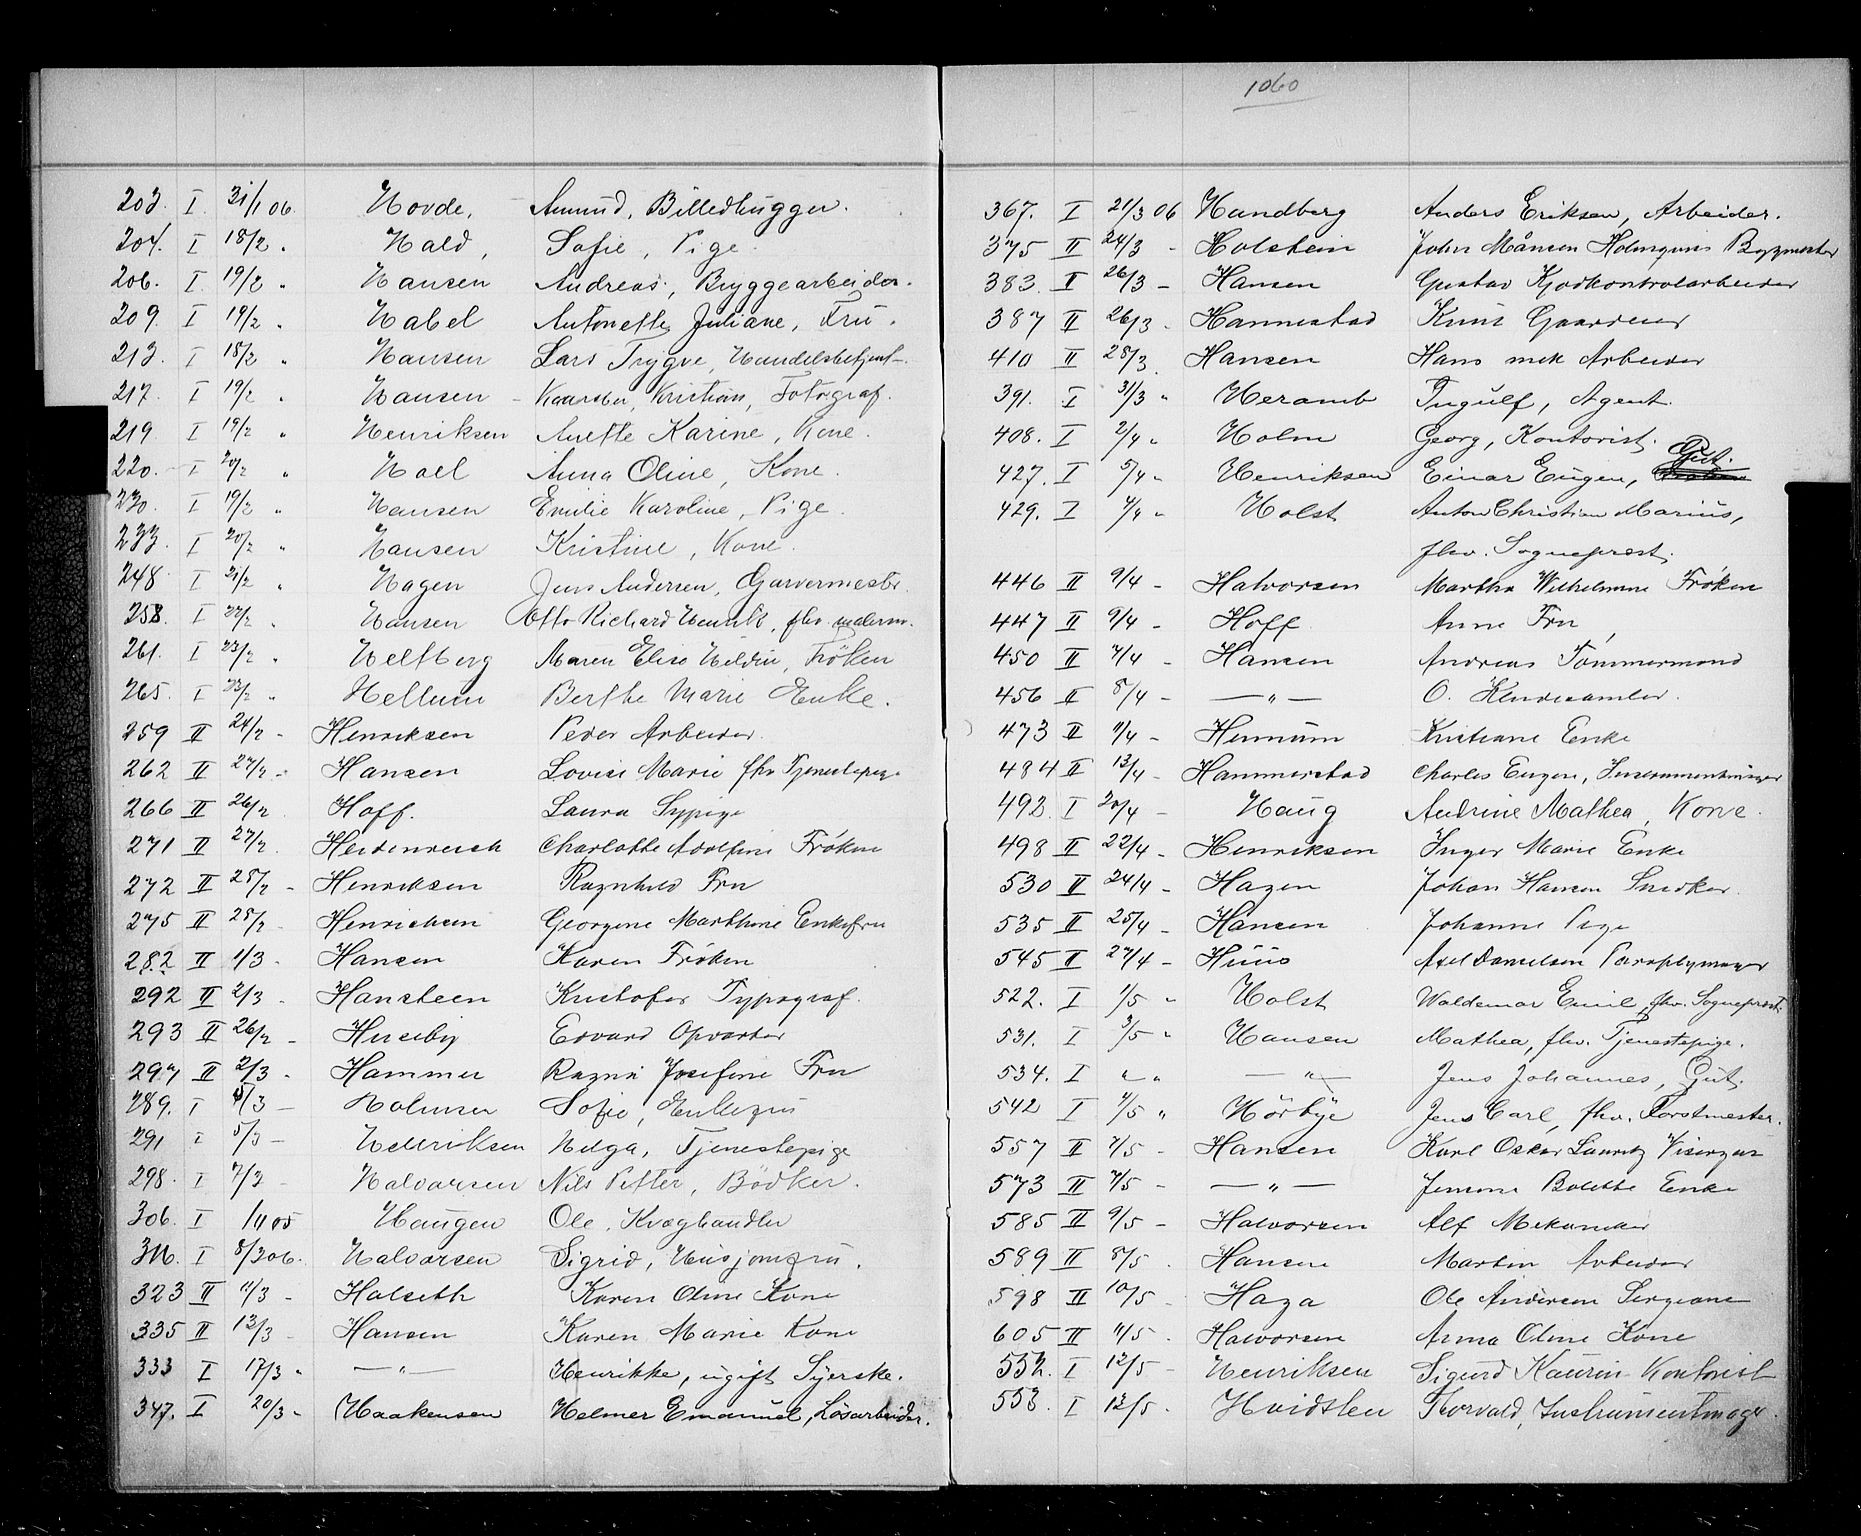 203. I. 31/1 06. Hovde, Amund, Billedhugger.
204. I 18/2 „ Hald, Sofie, Pige.
206. I. 19/2 „ Hansen Andreas, Bryggearbeider.
209. I 19/2 „ Habel Antonette Juliane, Fru.
213. I 18/2 „ Hansen Lars Trygve, Handelsbetjent
217. I 19/2 „ Hansen - Kristian, Fotograf.
219. I 19/2 „ Henriksen Anette Karine, Kone.
220. I 20/2 „ Hoel Anna Oline, Kone.
230. I 19/2 „ Hansen Emilie Karoline, Pige.
233. I 20/2 „ Hansen Kristine, Kone.
248 I 21/2 „ Hagen Jens Andersen, Garvermester.
258. I 22/2 „ Hansen Otto Richard Henrik, fhv.
261. I 23/2 „ Helfberg Maren Elise Hildur, Frøken
265. I 23/2 „ Hellum Berthe Marie Enke.
259 II 24/2 - Henriksen Peder Arbeider.
262 II 27/2 - Hansen Lovise Marie fhv Tjenestepige
266 II 26/2 Hoff. Laura Sypige
271 II 27/2 Heidenreich Charlotte Adolfine Frøken
272 II 28/2 - Henriksen Ragnhild Fru
275 II 28/2 Henrichsen Georgine Marthine Enkefru
282 II 1/3 - Hansen Karen Frøken
292 II 2/3 - Hansteen Kristofer Typograf.
293 II 26/2 - Huseby Edvard Opvarter
297 II 2/3 - Hammer Ragna Josefine Fru
289. I 5/3 - Holmsen Sofie, Enkefru
291 I 5/3 - Hendriksen Helga, Tjenestepige
298. I 7/3 - Halvorsen Nils Petter, Bødker.
306. I 1/11 05 Haugen Ole, Kvæghandler
316. I 8/3 06. Halvorsen Sigrid, Husjomfru.
323 II 11/3 - Halseth Karen Oline Kone
335 II 13/3 - Hansen Karen Marie Kone
333 I 17/3 - —„— Henrikke, ugift Syerske.
347. I 20/3 - Haakensen Helmer Emanuel, Løsarbeider.
1060
367. I 21/3 06 Handberg Anders Eriksen, Arbeider.
375 II 24/3 - Holstein John Månsen Holmquist Bygmester
383. II 26/3 - Hansen Gustav Kjødkontrolarbeider
387 II 26/3 - Hannestad Knut Gaardeier
410 II 28/3. Hansen Hans mek Arbeider
391. I 31/3 „ Heramb Ingulf, Agent.
408. I 2/4 „ Holm Georg, Kontorist.
427. I 5/4 „ Henriksen Einar Eugen, Gut.
429. I 7/4 „ Holst Anton Christian Marius,
fhv. Sogneprest.
446 II 9/4 - Halvorsen Martha Wilhelmine Frøken
447 II 9/4 - Hoff Anne Fru
450 II 7/4 - Hansen Andreas Tømmermand
456 II 8/4 - —„— O. Kludesamler.
473 II 11/4 - Hemum Kristiane Enke
484 II 13/4 - Hammerstad Charles Eugen, Instrumentmager
492. I 20/4 - Haug Andrine Mathea, Kone.
498 II 22/4 - Henriksen Inger Marie Enke
530 II 24/4 - Hagen Johan Hansen Snedker.
535 II 25/4 - Hansen Johanne Pige
545 II 27/4 - Huus Axel Danielsen Paraplymager
522. I 1/5 „ Holst Waldemar Emil, fhv. Sogneprest
531. I 3/5 „ Hansen Mathea, fhv. Tjenestepige.
534. I „ „ —„— Jens Johannes, Gut.
542 I 7/5 „ Hörbye Jens Carl, fhv. Forstmester.
557 II 7/5 - Hansen Karl Oskar Lauritz Visergut
573 II 7/5 - —„— Jensine Bolette Enke
585 II 9/5 - Halvorsen Alf Mekaniker
589 II 8/5 . Hansen Martin Arbeider
598 II 10/5 - Haga Ole Andersen Sergeant
605 II 11/5 . Halvorsen Anna Oline Kone
552. I 12/5 - Henriksen Sigurd Kaurin Kontorist
553. I 12/5 - Hvidsten Thorvald, Instrumentmager.